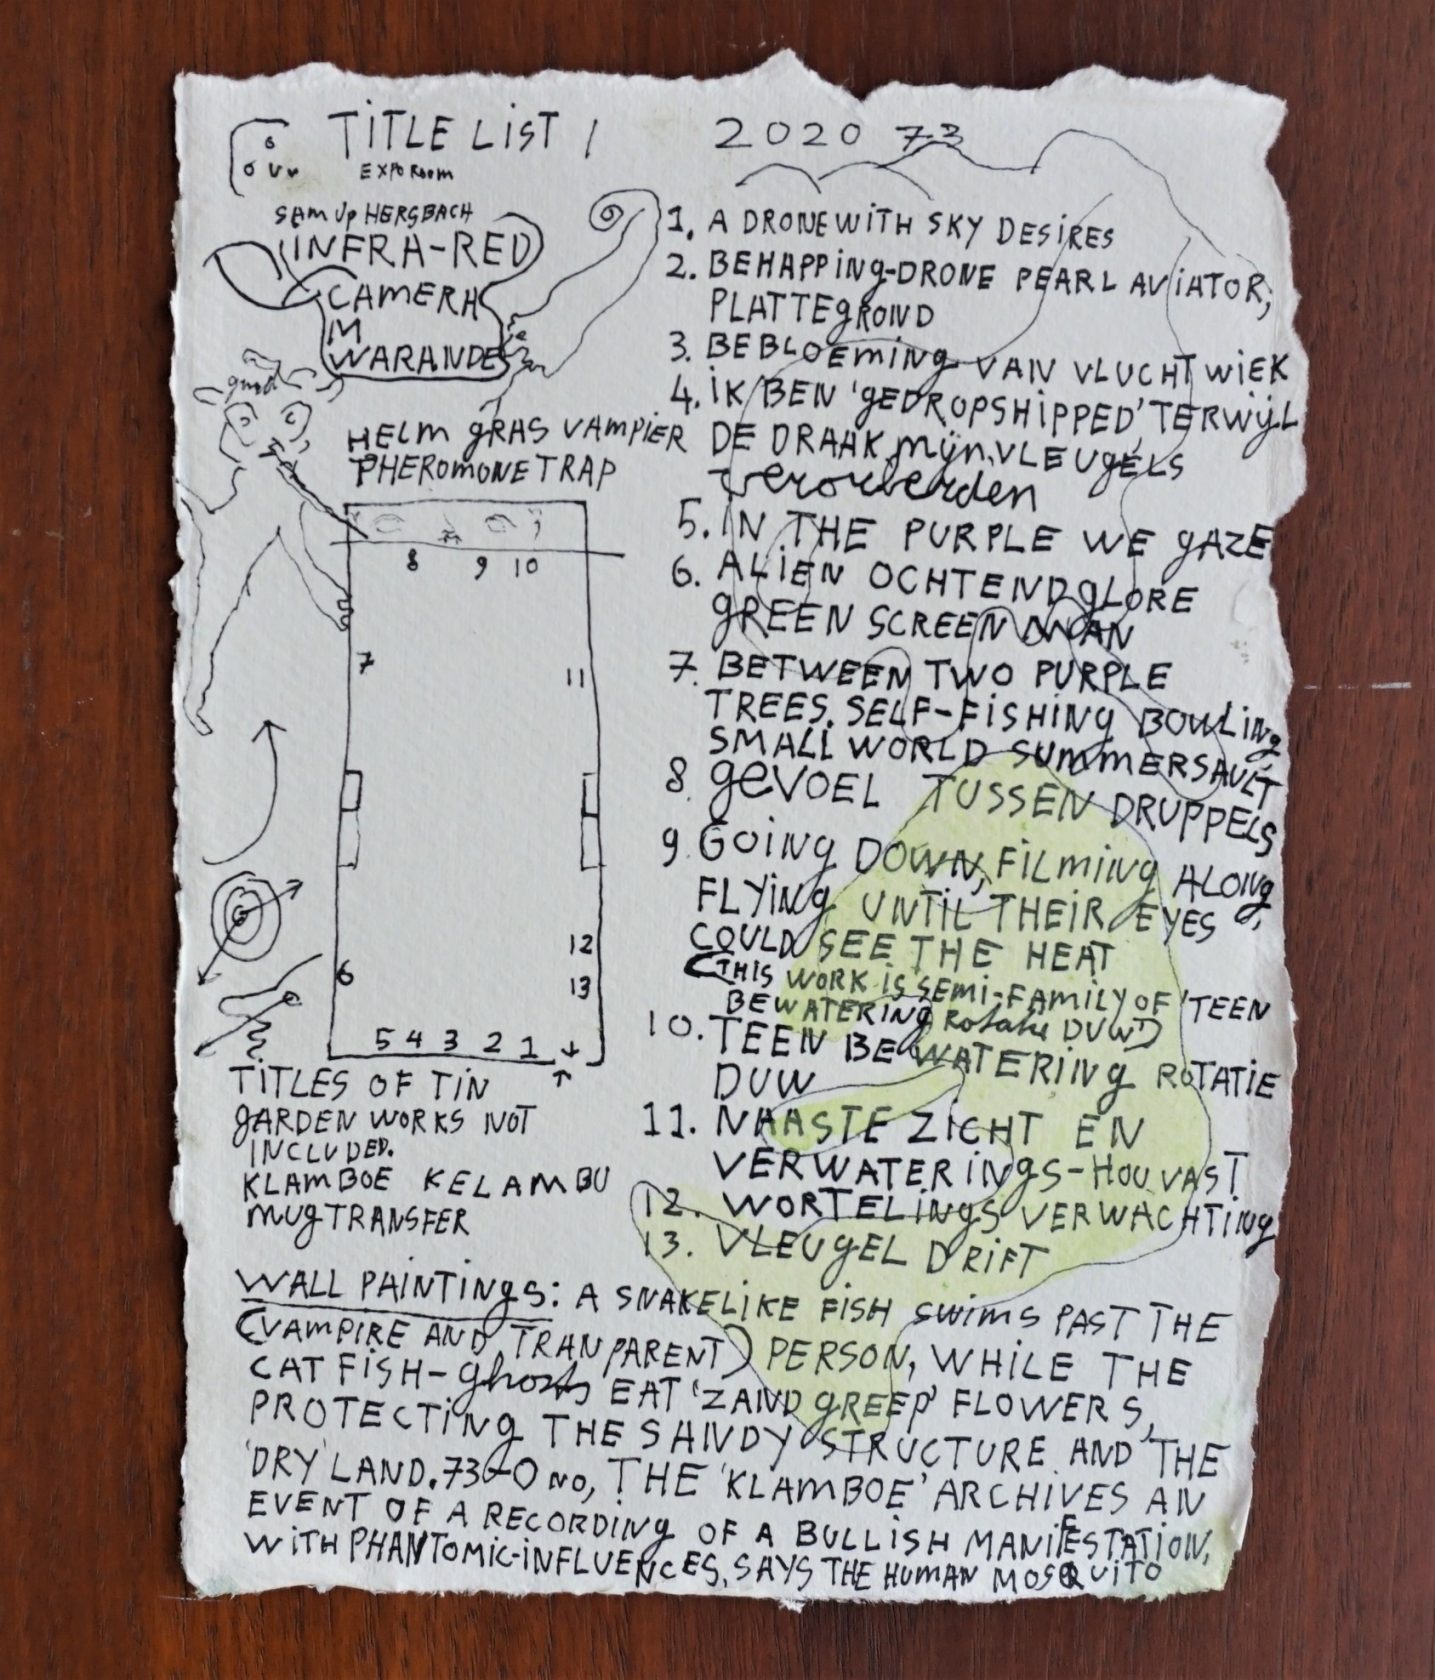 TITLE LIST 1
EXPO ROOM
SAM UP HERSBACH
INFRA-RED
CAMERA
IM
WARANDE
HELM GRAS VAMPIER
PHEROMONE TRAP
8 9 10
7 11
12
6 13
5 4 3 2 1
TITLES OF TIN
GARDEN WORKS NOT
INCLUDED.
KLAMBOE KELAMBU
MUGTRANSFER
2020 73
1. A DRONE WITH SKY DESIRES
2. BEHAPPING-DRONE PEARL AVIATOR,
PLATTEGROND
3. BEBLOEMING VAN VLUCHT WIEK
4. IK BEN 'GEDROPSHIPPED' TERWIJL
DE DRAAK MIJN VLEUGELS
verorberden
5. IN THE PURPLE WE GAZE
6. ALIEN OCHTENDGLORE
GREEN SCREEN MAN
7. BETWEEN TWO PURPLE
TREES. SELF-FISHING BOWLING
SMALL WORLD SUMMERSAULT
8. GEVOEL TUSSEN DRUPPELS
9. GOING DOWN, FILMING ALONG
FLYING UNTIL THEIR EYES
COULD SEE THE HEAT
(THIS WORK IS SEMI-FAMILY OF 'TEEN
BEWATERING ROTATIE DUW)
10. TEEN BEWATERING ROTATIE
DUW
11. NAASTE ZICHT EN
VERWATERINGS-HOUVAST
12. WORTELINGSVERWACHTING
13. VLEUGEL DRIFT
WALL PAINTINGS: A SNAKELIKE FISH SWIMS PAST THE
(VAMPIRE AND TRANPARENT) PERSON, WHILE THE
CATFISH-ghosts EAT 'ZANDGREEP' FLOWERS,
PROTECTING THE SANDY STRUCTURE AND THE
'DRY' LAND. 73-O NO, THE 'KLAMBOE' ARCHIVES AN
EVENT OF A RECORDING OF A BULLISH MANIFESTATION,
WITH PHANTOMIC-INFLUENCES, SAYS THE HUMAN MOSQUITO